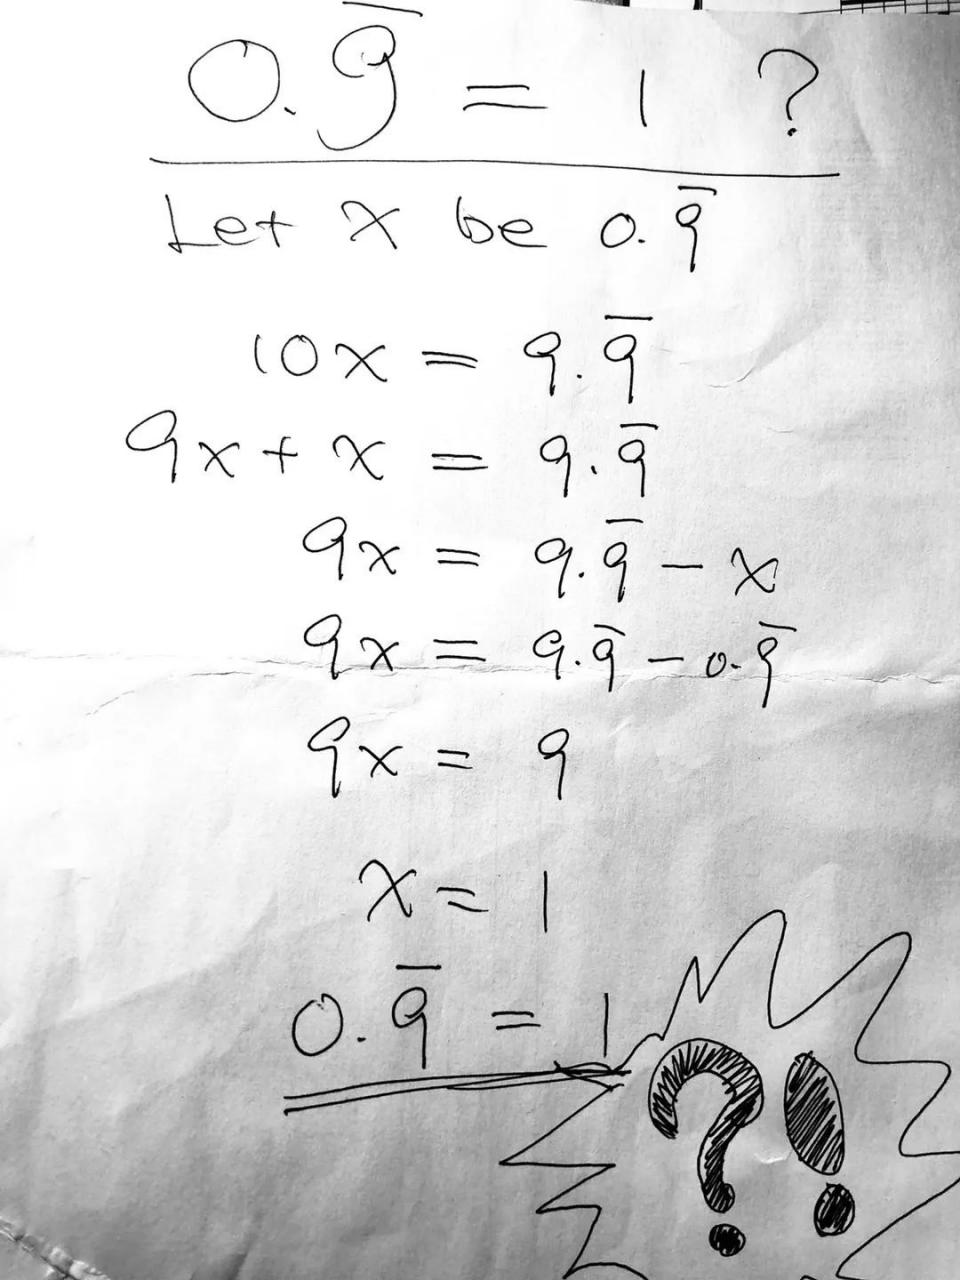 0.9̅ = 1 ?
Let x be 0.9̅
10x = 9.9̅
9x + x = 9.9̅
9x = 9.9̅ - x
9x = 9.9̅ - 0.9̅
9x = 9
x = 1
0.9̅ = 1
?!